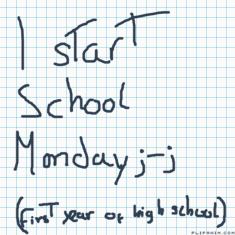 I start
School
Monday j-j
(first year of high school)
FLIPANIM.COM